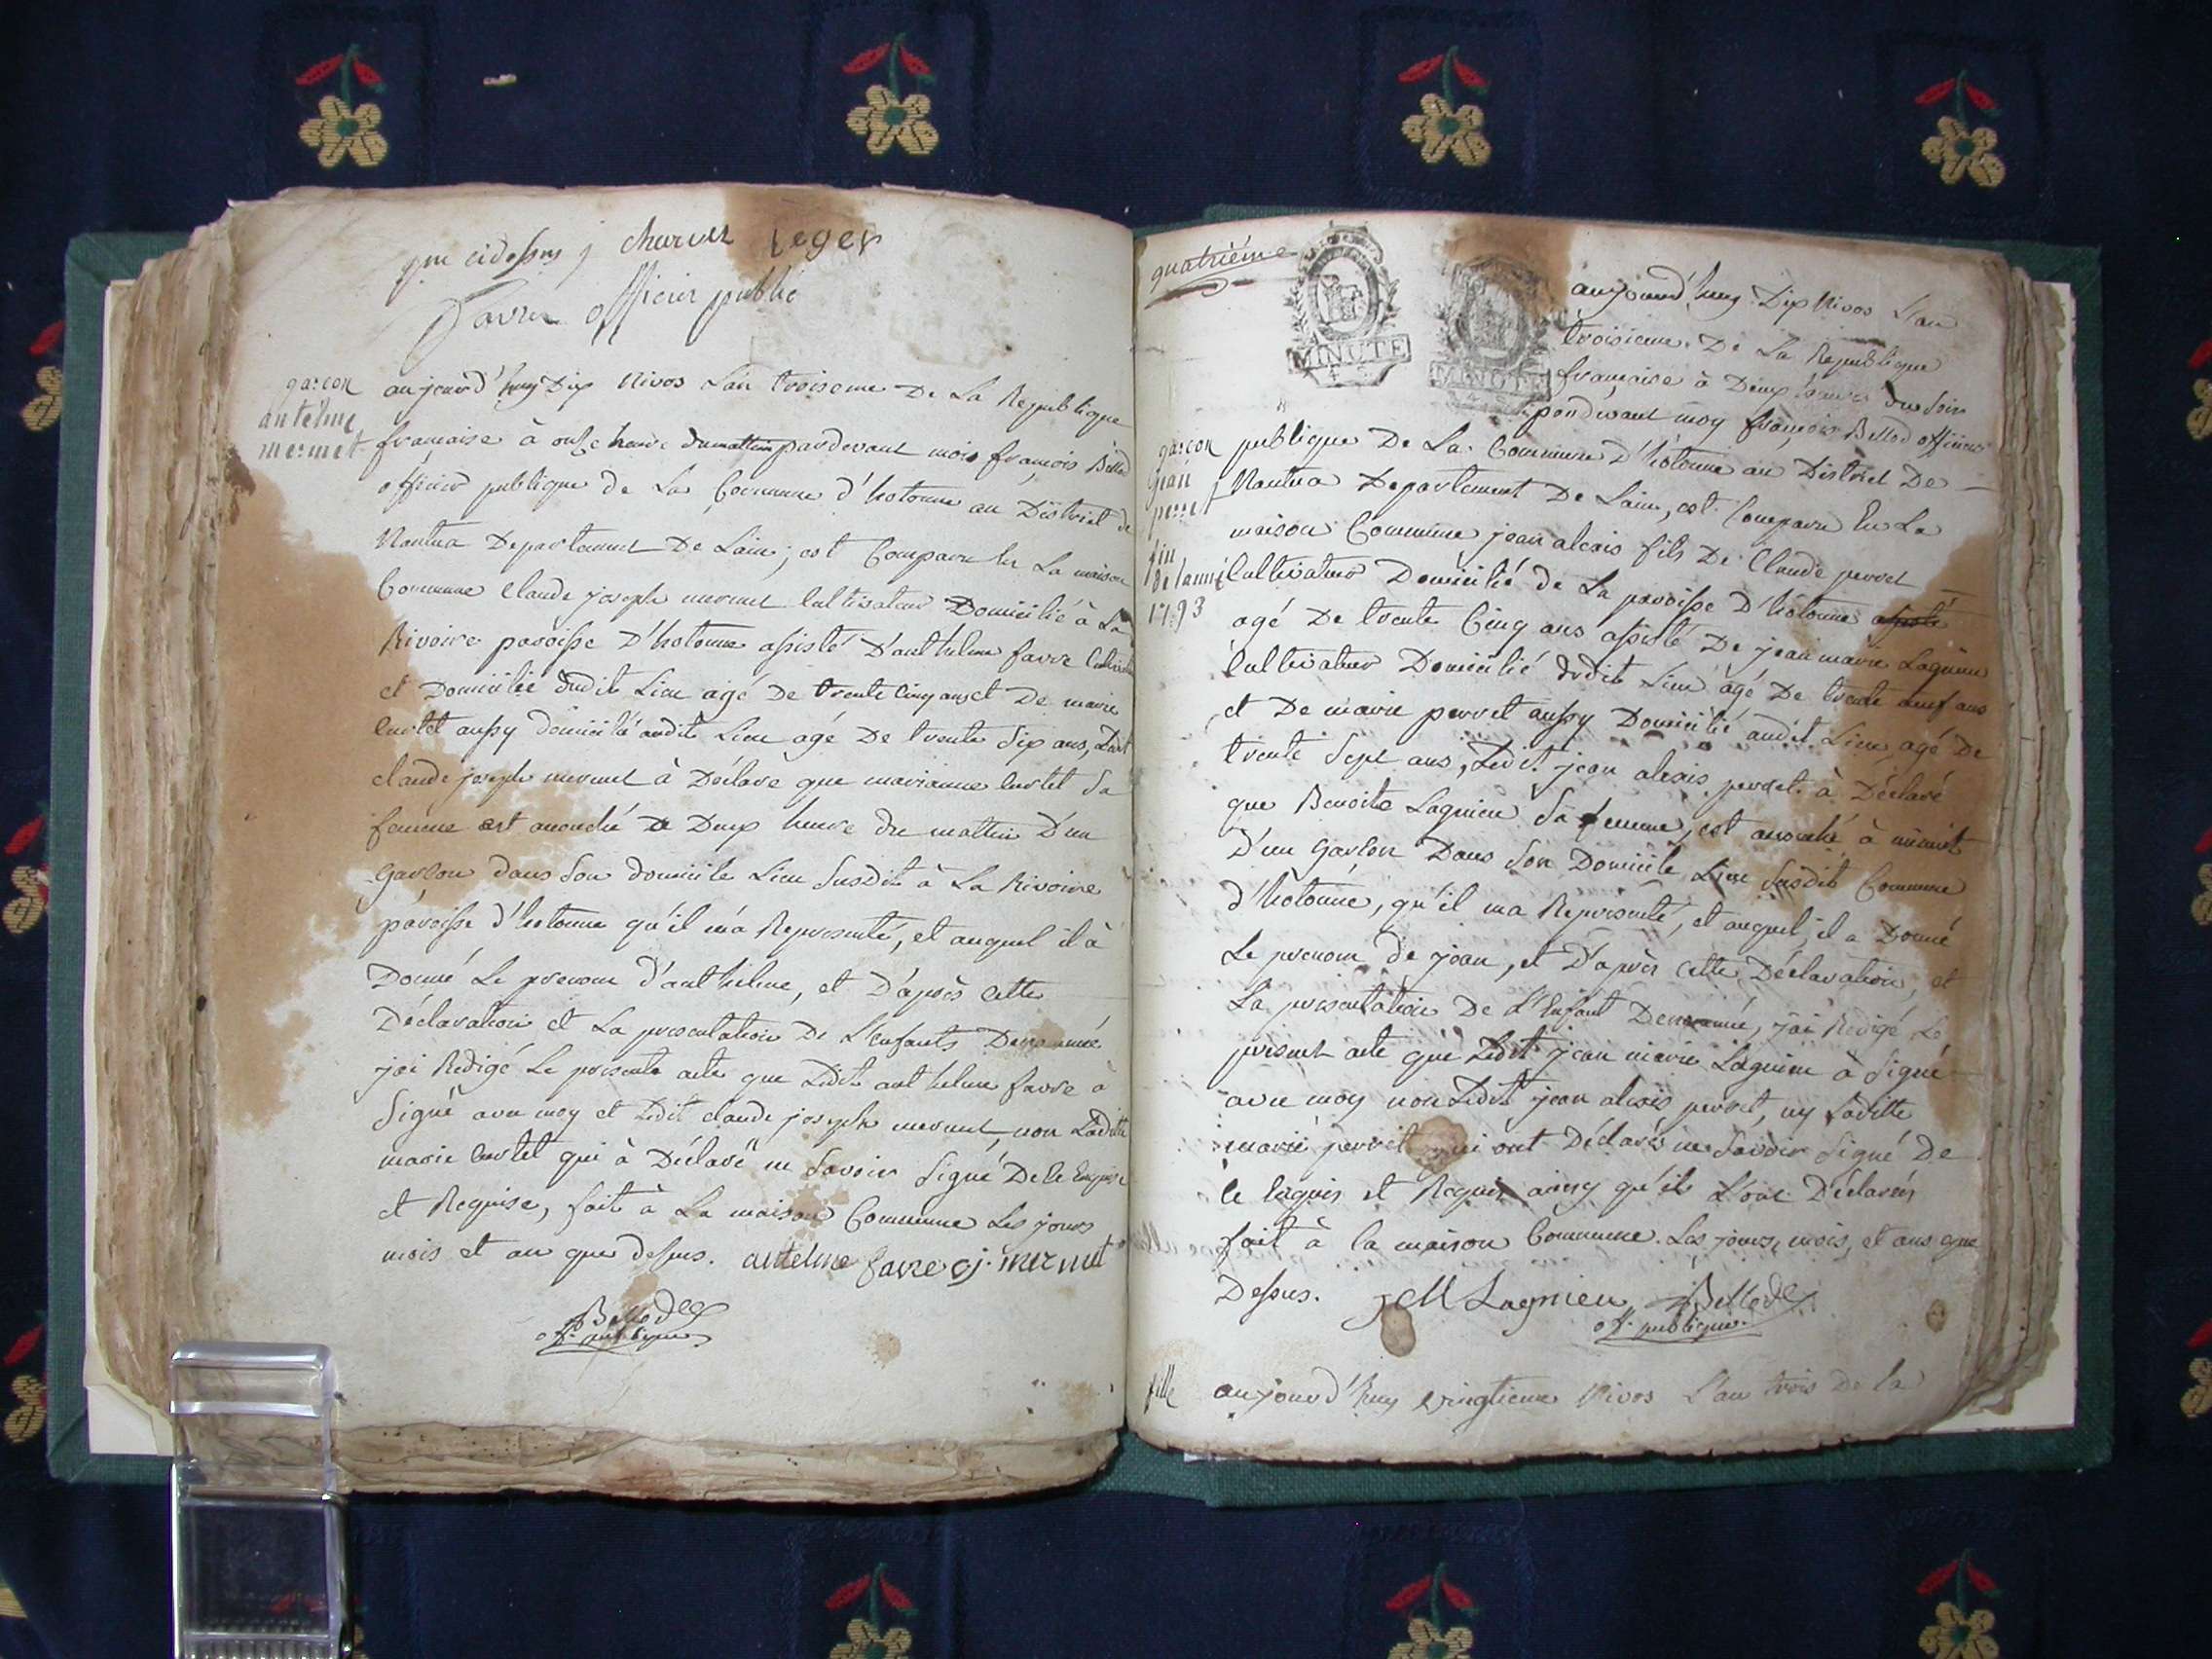 que cidessus j charvet Leger
Favre officier public
garcon
antelme
mermet
aujourd'huy Dix Nivos L'an troisieme De La Republique
francaise à onze heure du mattin pardevant mois françois Bellod
officier publique de La Commune d'hotonne au District de
Nantua Departement De Lain, est Comparu En La maison
Commune Claude joseph mermet Cultivateur Domicilié à La
Rivoire paroisse D'hotonne assisté D'anthelme favre Cultivateur
et Domicilié dudit Lieu agé De trente Cinq ans et De marie
Curtet aussy domicilié audit Lieu agé De trente Six ans, Ledit
claude joseph mermet à Déclare que marianne Curtet Sa
femme est acouché De Deux heure du mattin D'un
Garson dans Son domicile Lieu Susdit à La Rivoire
paroisse d'hotonne qu'il m'a Representé, et auquel il à
Donné Le prenom d'anthelme, et D'après Cette
Déclaration et La presentation De L'enfants Denommé
jai Redigé Le presente acte que Ledit anthelme favre à
Signé avec moy et Ledit claude joseph mermet, non Laditte
marie Curtet qui à Déclaré ne Savoir Signé De le Enquise
et Requise, fait à La maison Commune Les jours
mois et an que dessus. antelme favre cj. mermet
Bellod
off. publique
quatrième
MINUTE
MINUTE
aujourd'huy Dix Nivos L'an
troisieme De La Republique
francaise à Deux heures du Soir
pardevant moy françois Bellod officier
garcon
jean
perret
fin
de lanné
1793
publique De La Commune D'hotonne au District De
Nantua Departement De Lain, est Comparu En La
maison Commune jean alexis fils De Claude perret
Cultivateur Domicilié de La paroisse D'hotonne assisté
agé De trente Cinq ans assisté De jean marie Lagnieu
Cultivateur Domicilié dudit Lieu agé De trente neuf ans
et De marie perret aussy Domicilié audit Lieu, agé De
trente Sept ans, Ledit jean alexis perret à Déclaré
que Benoite Lagnieu Sa femme, est acouché à minuit
D'un Garson Dans Son Domicile Lieu Susdit Commune
d'hotonne, qu'il ma Representé, et auquel il a Donné
Le prenom de jean, et D'après cette Déclaration, et
La presentation De L'Enfant Denommé, jai Redigé Le
present acte que Ledit jean marie Lagnieu à Signé
avec moy non Ledit jean alexis perret, ny Laditte
marie perret qui ont Déclarés ne Savoir Signé De
le Enquis et Requis ainsy qu'il L'ont Déclarés
fait à la maison Commune Les jours, mois, et ans que
Dessus. JM Lagnieu Bellod
off. publique
fille
aujourd'huy vingtieme Nivos L'an trois De la